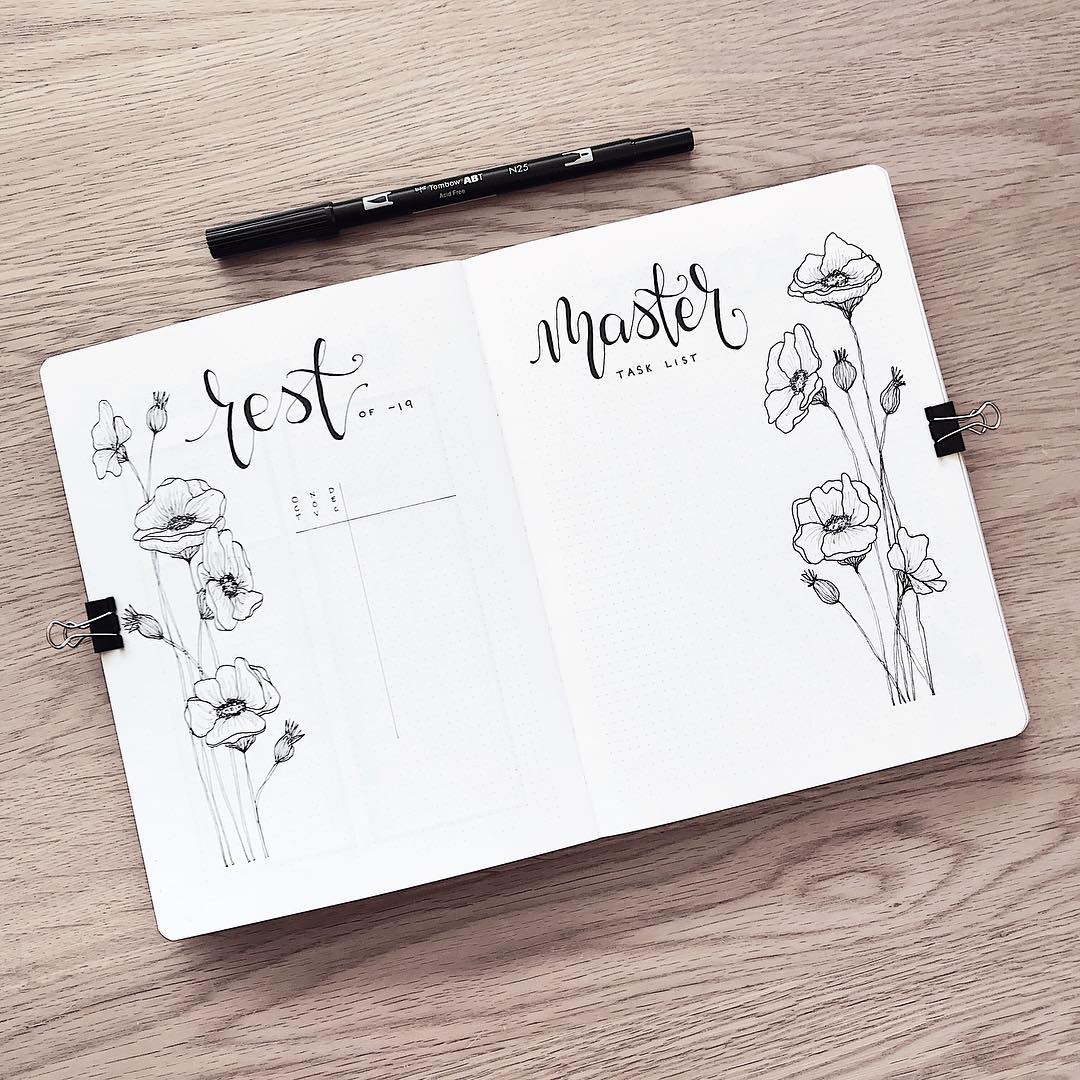 Tombow ABT N25
Acid Free
rest
OF -19
OCT
NOV
DEC
master
TASK LIST